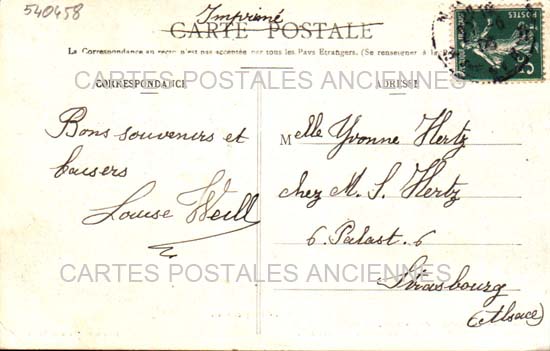 540458
Imprimé
CARTE POSTALE
La Correspondance au recto n'est pas acceptée par tous les Pays Etrangers. (Se renseigner à la
CARTES POSTALES ANCIENNES
CORRESPONDANCE
ADRESSE
Bons souvenirs et
baisers
Louise Weill
Melle Yvonne Hertz
chez M. S. Hertz
6. Palast. 6
Strasbourg
(Alsace)
CARTES POSTALES ANCIENNES
POSTES
5c